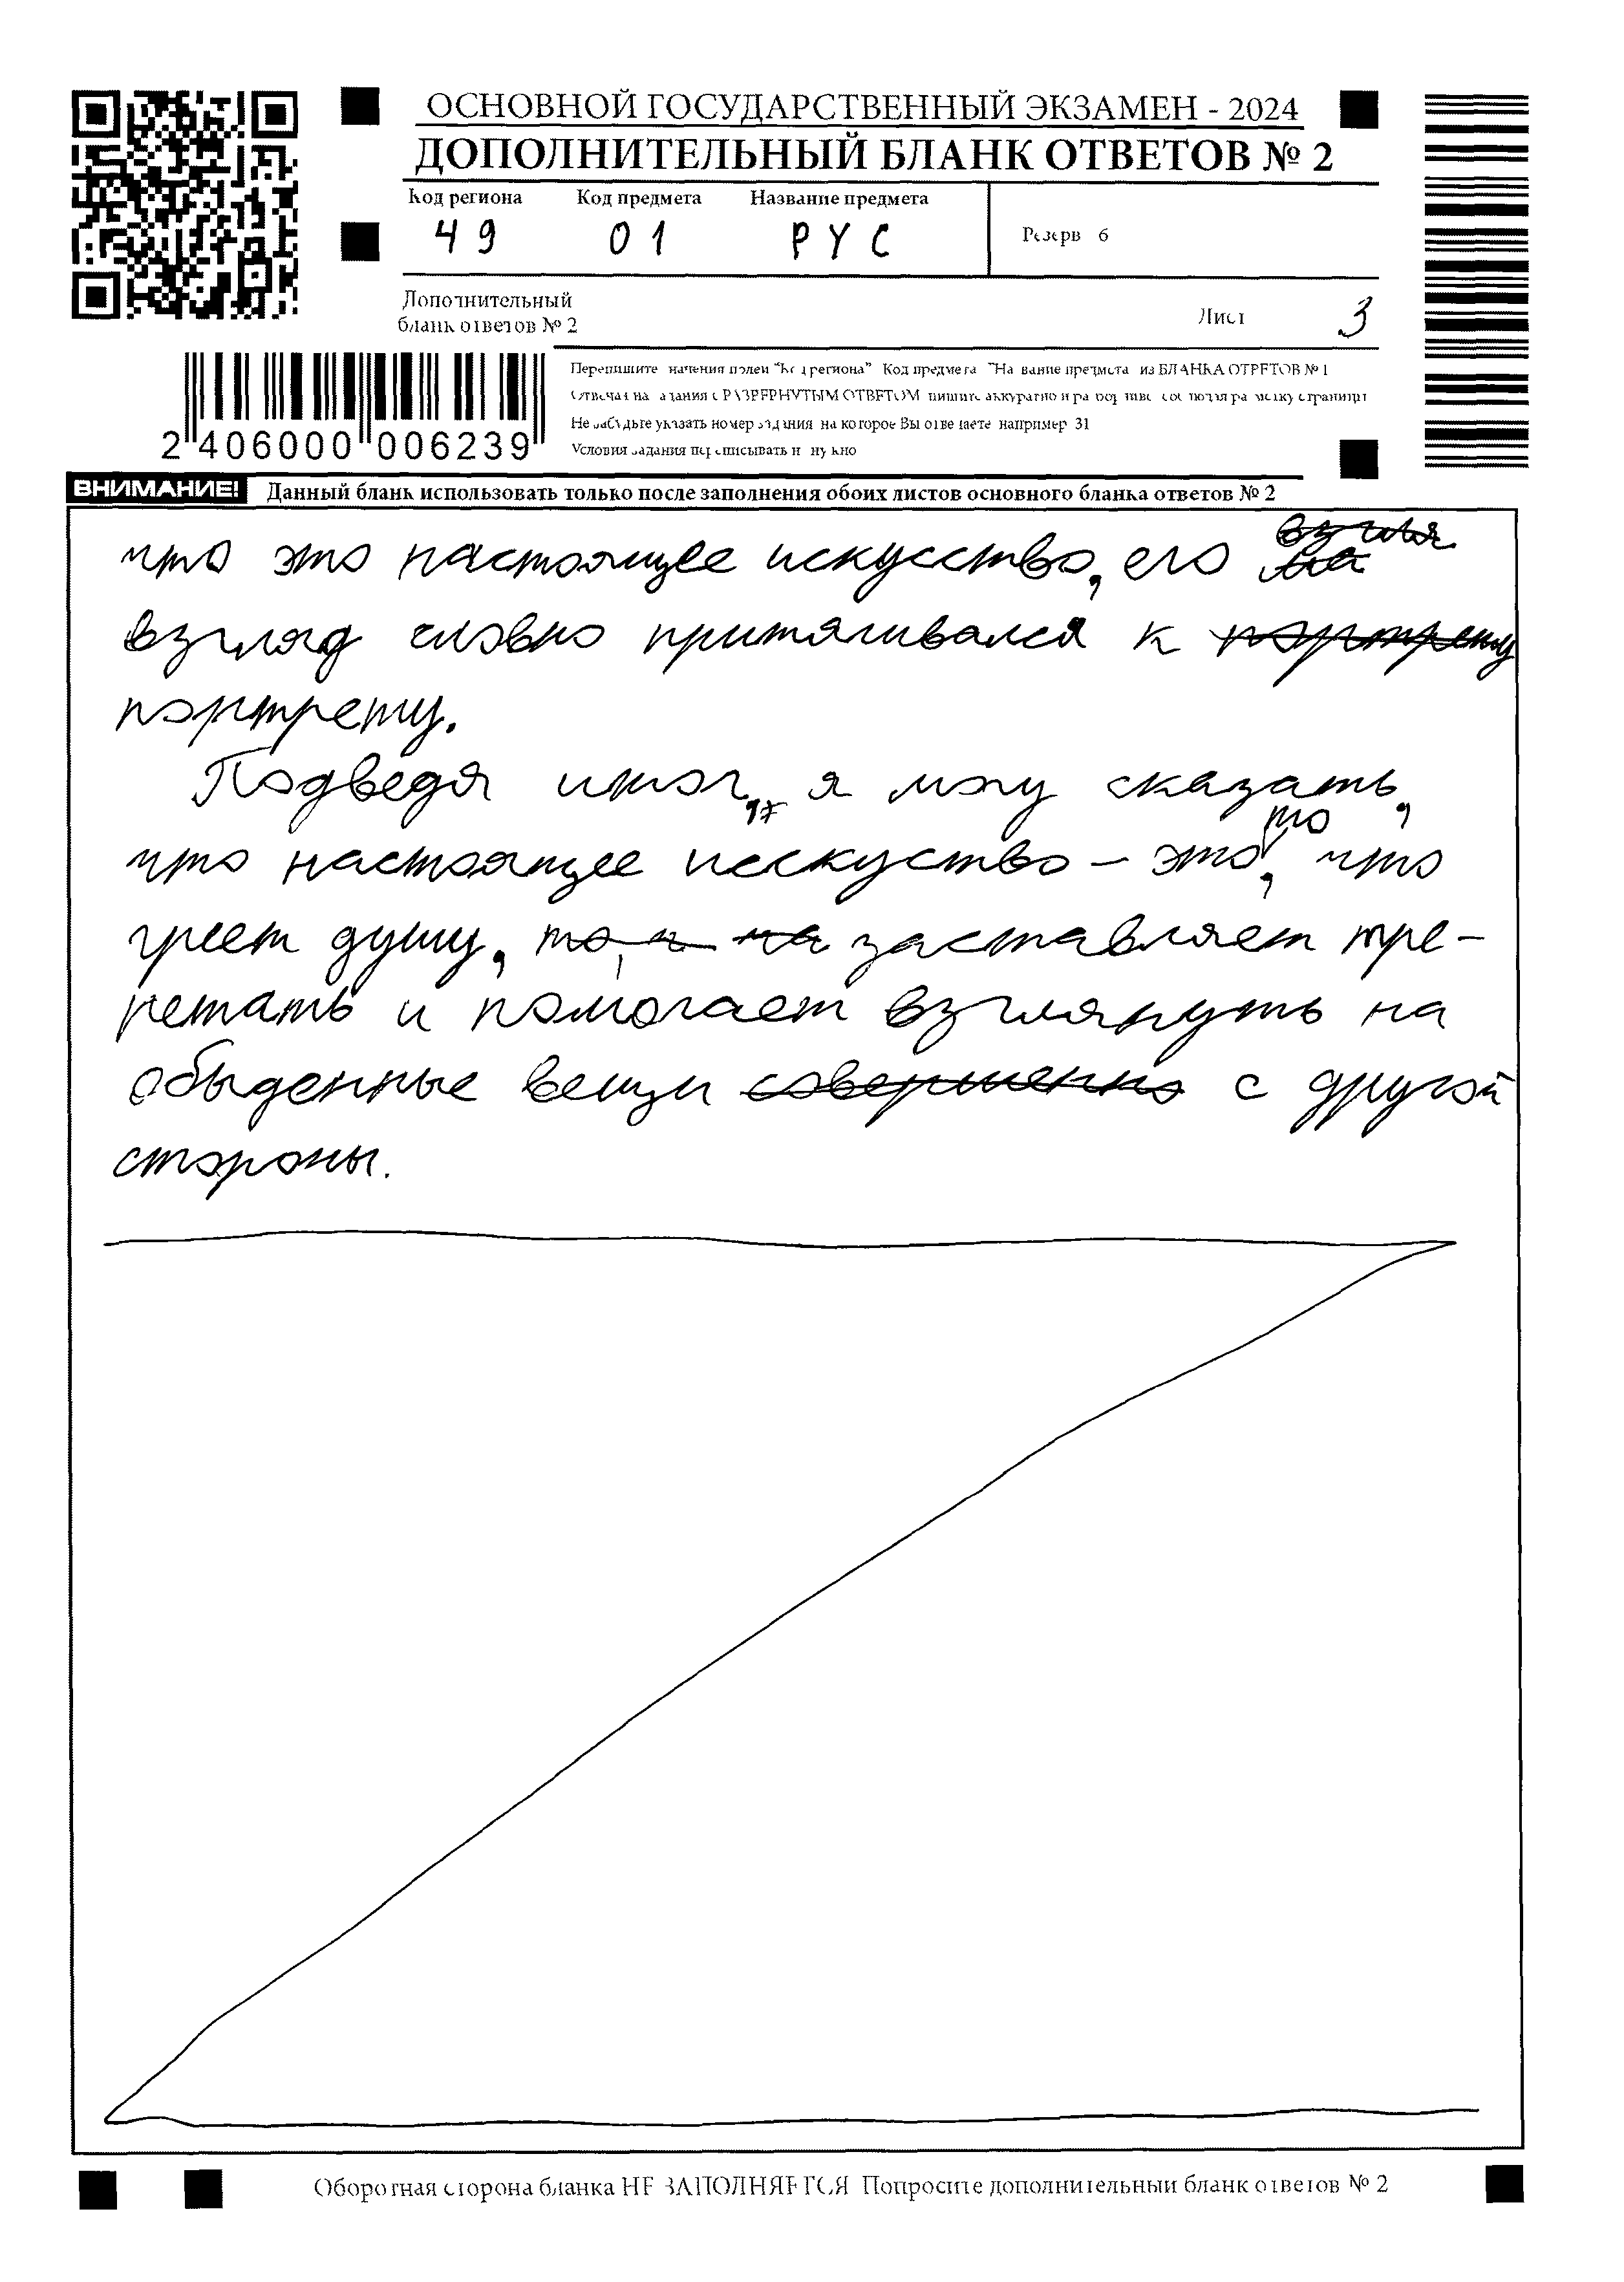 ОСНОВНОЙ ГОСУДАРСТВЕННЫЙ ЭКЗАМЕН - 2024
ДОПОЛНИТЕЛЬНЫЙ БЛАНК ОТВЕТОВ № 2
Код региона Код предмета Название предмета
49 01 РУС
Резерв 6
Дополнительный
бланк ответов № 2
Лист 3
2 406000 006239
Перепишите значения полей "Код региона" Код предмета "Название предмета из БЛАНКА ОТВЕТОВ № 1
Отвечая на задания с РАЗВЕРНУТЫМ ОТВЕТОМ пишите аккуратно и разборчиво соблюдая разметку страницы
Не забудьте указать номер задания на которое Вы отвечаете например 31
Условия задания переписывать не нужно
ВНИМАНИЕ! Данный бланк использовать только после заполнения обоих листов основного бланка ответов № 2
что это настоящее искусство, его
взгляд словно притягивался к портрету
портрету.
Подведя итог, я могу сказать,
что настоящее исскуство – это то, что
греет душу, заставляет тре-
петать и помогает взглянуть на
обыденные вещи совершенно с другой
стороны.
Оборотная сторона бланка НЕ ЗАПОЛНЯЕТСЯ Попросите дополнительный бланк ответов № 2